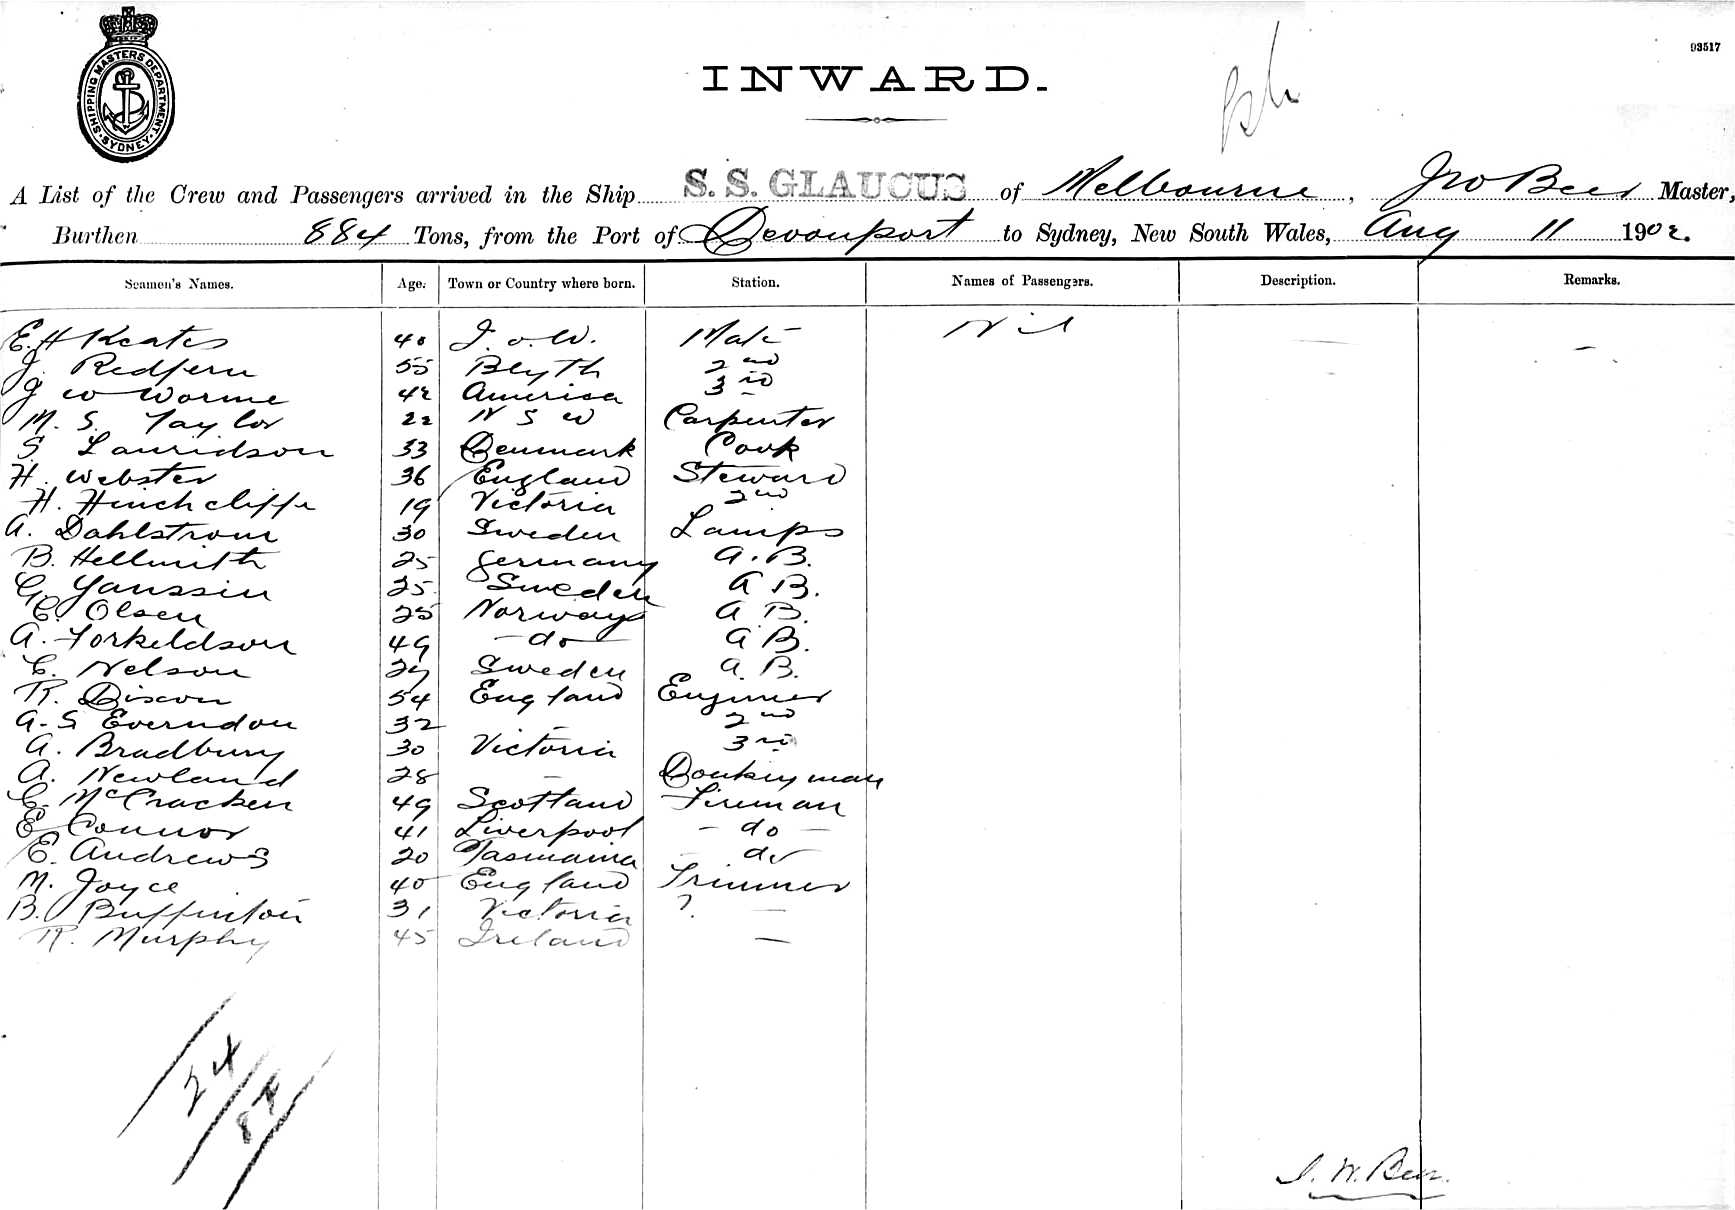 93517
SHIPPING MASTERS DEPARTMENT SYDNEY
INWARD.
A List of the Crew and Passengers arrived in the Ship S. S. GLAUCUS of Melbourne, Jno Beer Master,
Burthen 884 Tons, from the Port of Devonport to Sydney, New South Wales, Aug 11 1902.
Seamen's Names. Age. Town or Country where born. Station. Names of Passengers. Description. Remarks.
E. H Keates 40 I. o. W. Mate Nil —
J. Redfern 55 Blyth 2nd
J W Worme 42 America 3rd
M. S. Taylor 22 N S W Carpenter
S. Lauridson 33 Denmark Cook
H. Webster 36 England Steward
H. Hinchcliffe 19 Victoria 2nd
A. Dahlstrom 30 Sweden Lamps
B. Hellmith 25 Germany A. B.
G. Yanssin 25 Sweden A B.
C. Olsen 25 Norway A B.
A. Torkeldson 49 — do — A B.
C. Nelson 29 Sweden A. B.
R. Dixon 54 England Engineer
A. S Everndon 32 — 2nd
A. Bradbury 30 Victoria 3rd
A. Newland 28 — Donkeyman
C. McCracken 49 Scotland Fireman
E Connor 41 Liverpool — do —
E. Andrews 20 Tasmania — do
M. Joyce 40 England Trimmer
B. Buffinton 31 Victoria ? —
R. Murphy 45 Ireland —
24
J. W. Beer.